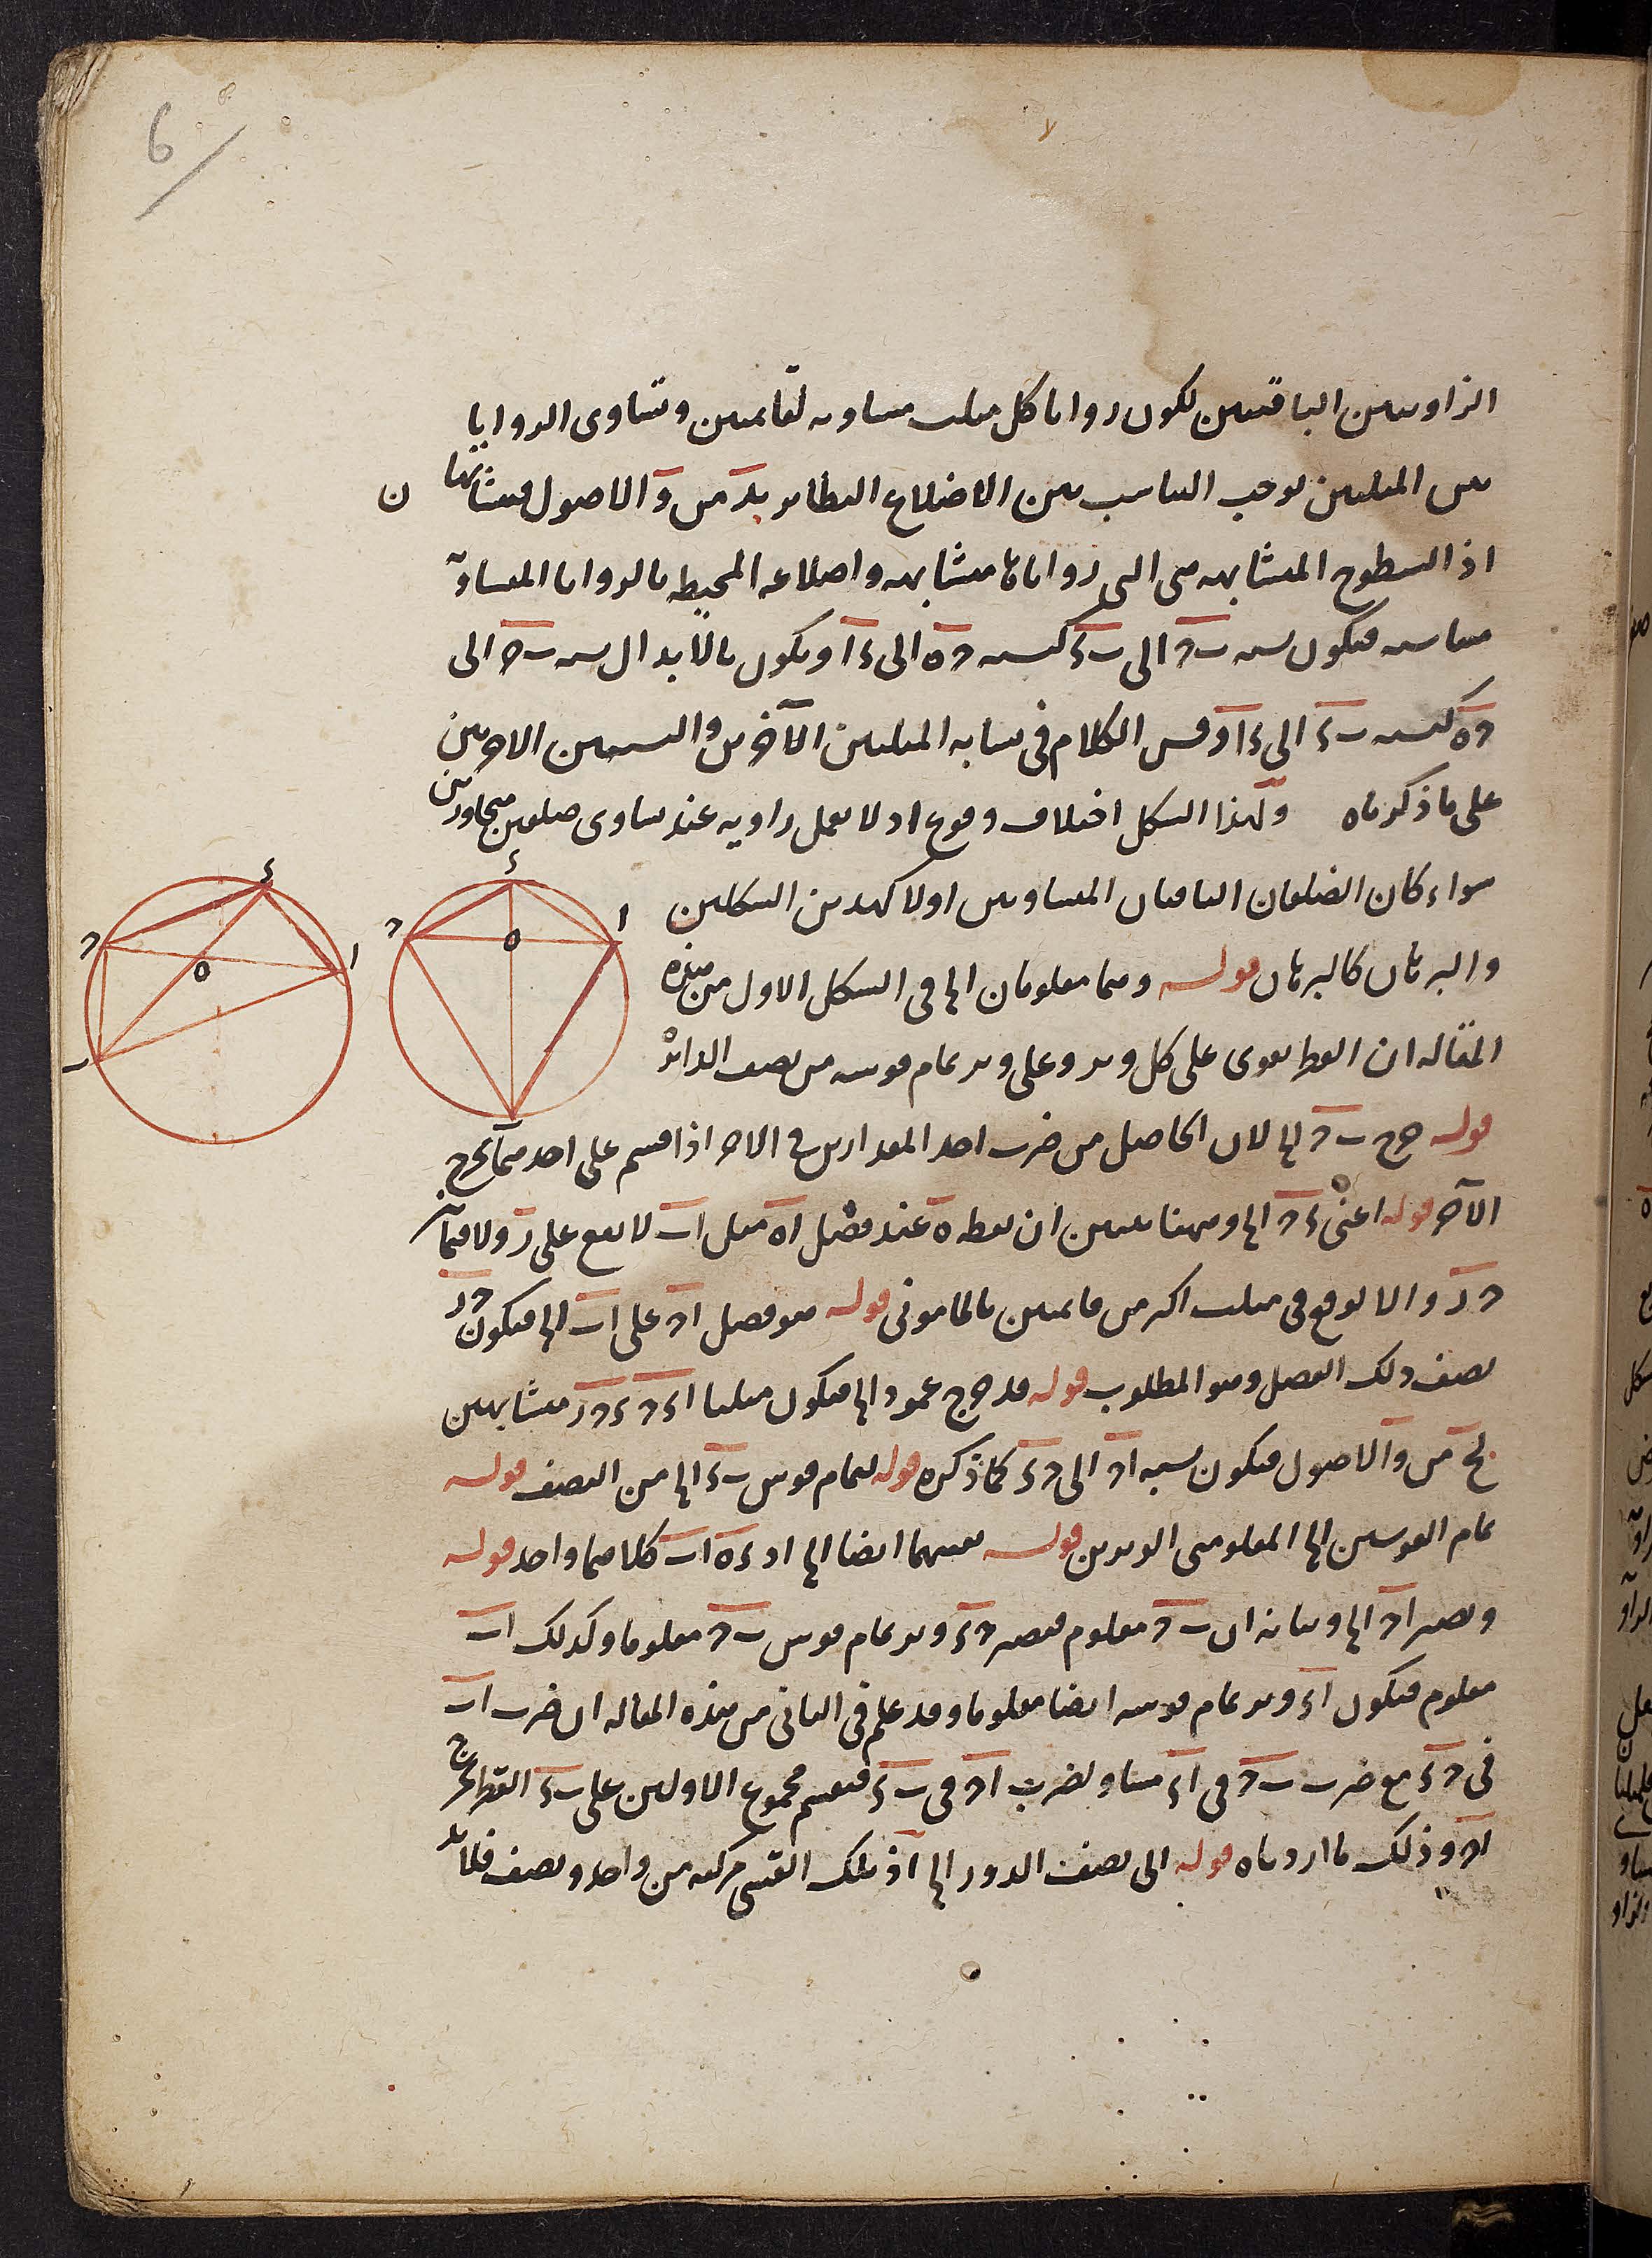 6
الزاويتين الباقيتين لكون زوايا كل مثلث مساوية لقايمتين وتساوى الزوايا
بين المثلثين يوجب التناسب بين الاضلاع النظاير بد من و الاصول فيتشابها ن
اذ السطوح المتشابهه هى التى زواياها متشابهه واضلاعه المحيطه بالزوايا المتساوية
متناسبه فيكون نسبه ب ج الى ب ء كنسبه ج ه الى ء ا ويكون بالابدال نسبه ب ج الى
ج ه كنسبه ب ء الى ء ا وقس الكلام فى تشابه المثلثين الآخرين والنسبتين الاخريين
على ما ذكرناه ولهذا الشكل اختلاف وقوع اذ لا يعمل زاويه عند تساوى ضلعين متجاورين
سواء كان الضلعان الباقيان المتساويين اولا كهذين الشكلين
والبرهان كالبرهان قوله وهما معلومان الخ فى الشكل الاول من هذه
المقاله ان القطر يقوى على كل وتر وعلى وتر تمام قوسه من نصف الدائرة
قوله خرج ب ج الخ لان الحاصل من ضرب احد المقدارين فى الاخر اذا قسم على احدهما يخرج
الآخر قوله اعنى ء ج الخ وههنا يتبين ان نقطة ه عند فصل ا ه مثل ا ب لا يقع على ز ولا فيما بين
ج ز والا لوقع فى مثلث اكثر من قايمتين بالمامونى قوله هو فضل ا ج على ا ب الخ فيكون ج ز
نصف ذلك الفضل وهو المطلوب قوله قد خرج عمود الخ فيكون مثلثا ا ء ج ء ج ز متشابهين
بح من و الاصول فيكون نسبه ا ج الى ج ء كما ذكره قوله لتمام قوس ب ء الخ من النصف قوله
تمام القوسين الخ المعلومتى الوترين قوله بعينهما ايضا الخ اذ ء ه ا ب كلاهما واحد قوله
ونصير ا ج الخ وبيانه ان ب ج معلوم فيصير ج ء وتر تمام قوس ب ج معلوما وكذلك ا ب
معلوم فيكون ا ء وتر تمام قوسه ايضا معلوما وقد علم فى الثانى من هذه المقاله ان ضرب ا ب
فى ج ء مع ضرب ب ج فى ا ء مساو لضرب ا ج فى ب ء فيقسم مجموع الاولين على ب ء القطر يخرج
ا ج وذلك ما اردناه قوله الى نصف الدور الخ اذ تلك القسى مركبه من واحد ونصف فلابد
ء
ج
ه
ا
ب
ء
ج
ه
ا